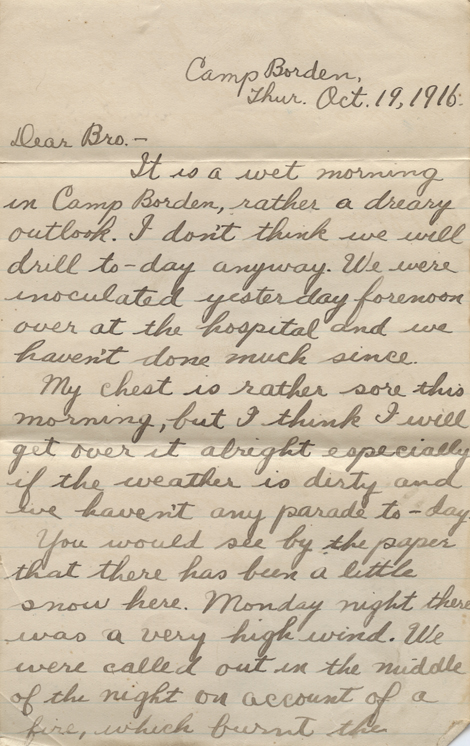 Camp Borden,
Thur. Oct. 19, 1916.
Dear Bro.-
It is a wet morning
in Camp Borden, rather a dreary
outlook. I don't think we will
drill to-day anyway. We were
inoculated yesterday forenoon
over at the hospital and we
haven't done much since.
My chest is rather sore this
morning, but I think I will
get over it alright especially
if the weather is dirty and
we haven't any parade to-day
You would see by the paper
that there has been a little
snow here. Monday night there
was a very high wind. We
were called out in the middle
of the night on account of a
fire, which burnt the